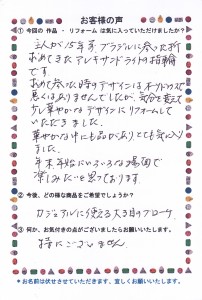 お客様の声
① 今回の 作品 ・ リフォーム は気に入っていただけましたか？
主人が15年前、ブラジルに参った折
求めてきたアレキサンドライトの指輪
です。
求めて参った時のデザインはオーソドックスで
悪くはありませんでしたが、気分を変えて
少し華やかなデザインにリフォームして
いただきました。
華やかな中にも品があり、とても気に入り
ました。
年末年始にいろいろな場面で
楽しみたいと思っております。
② 今後、どの様な商品をご希望でしょうか？
カジュアルに使える大き目ブローチ。
③ 何か、お気付きの点がございましたらお願いいたします。
特にございません。
＊お名前は伏せさせていただきます。宜しくお願いします。